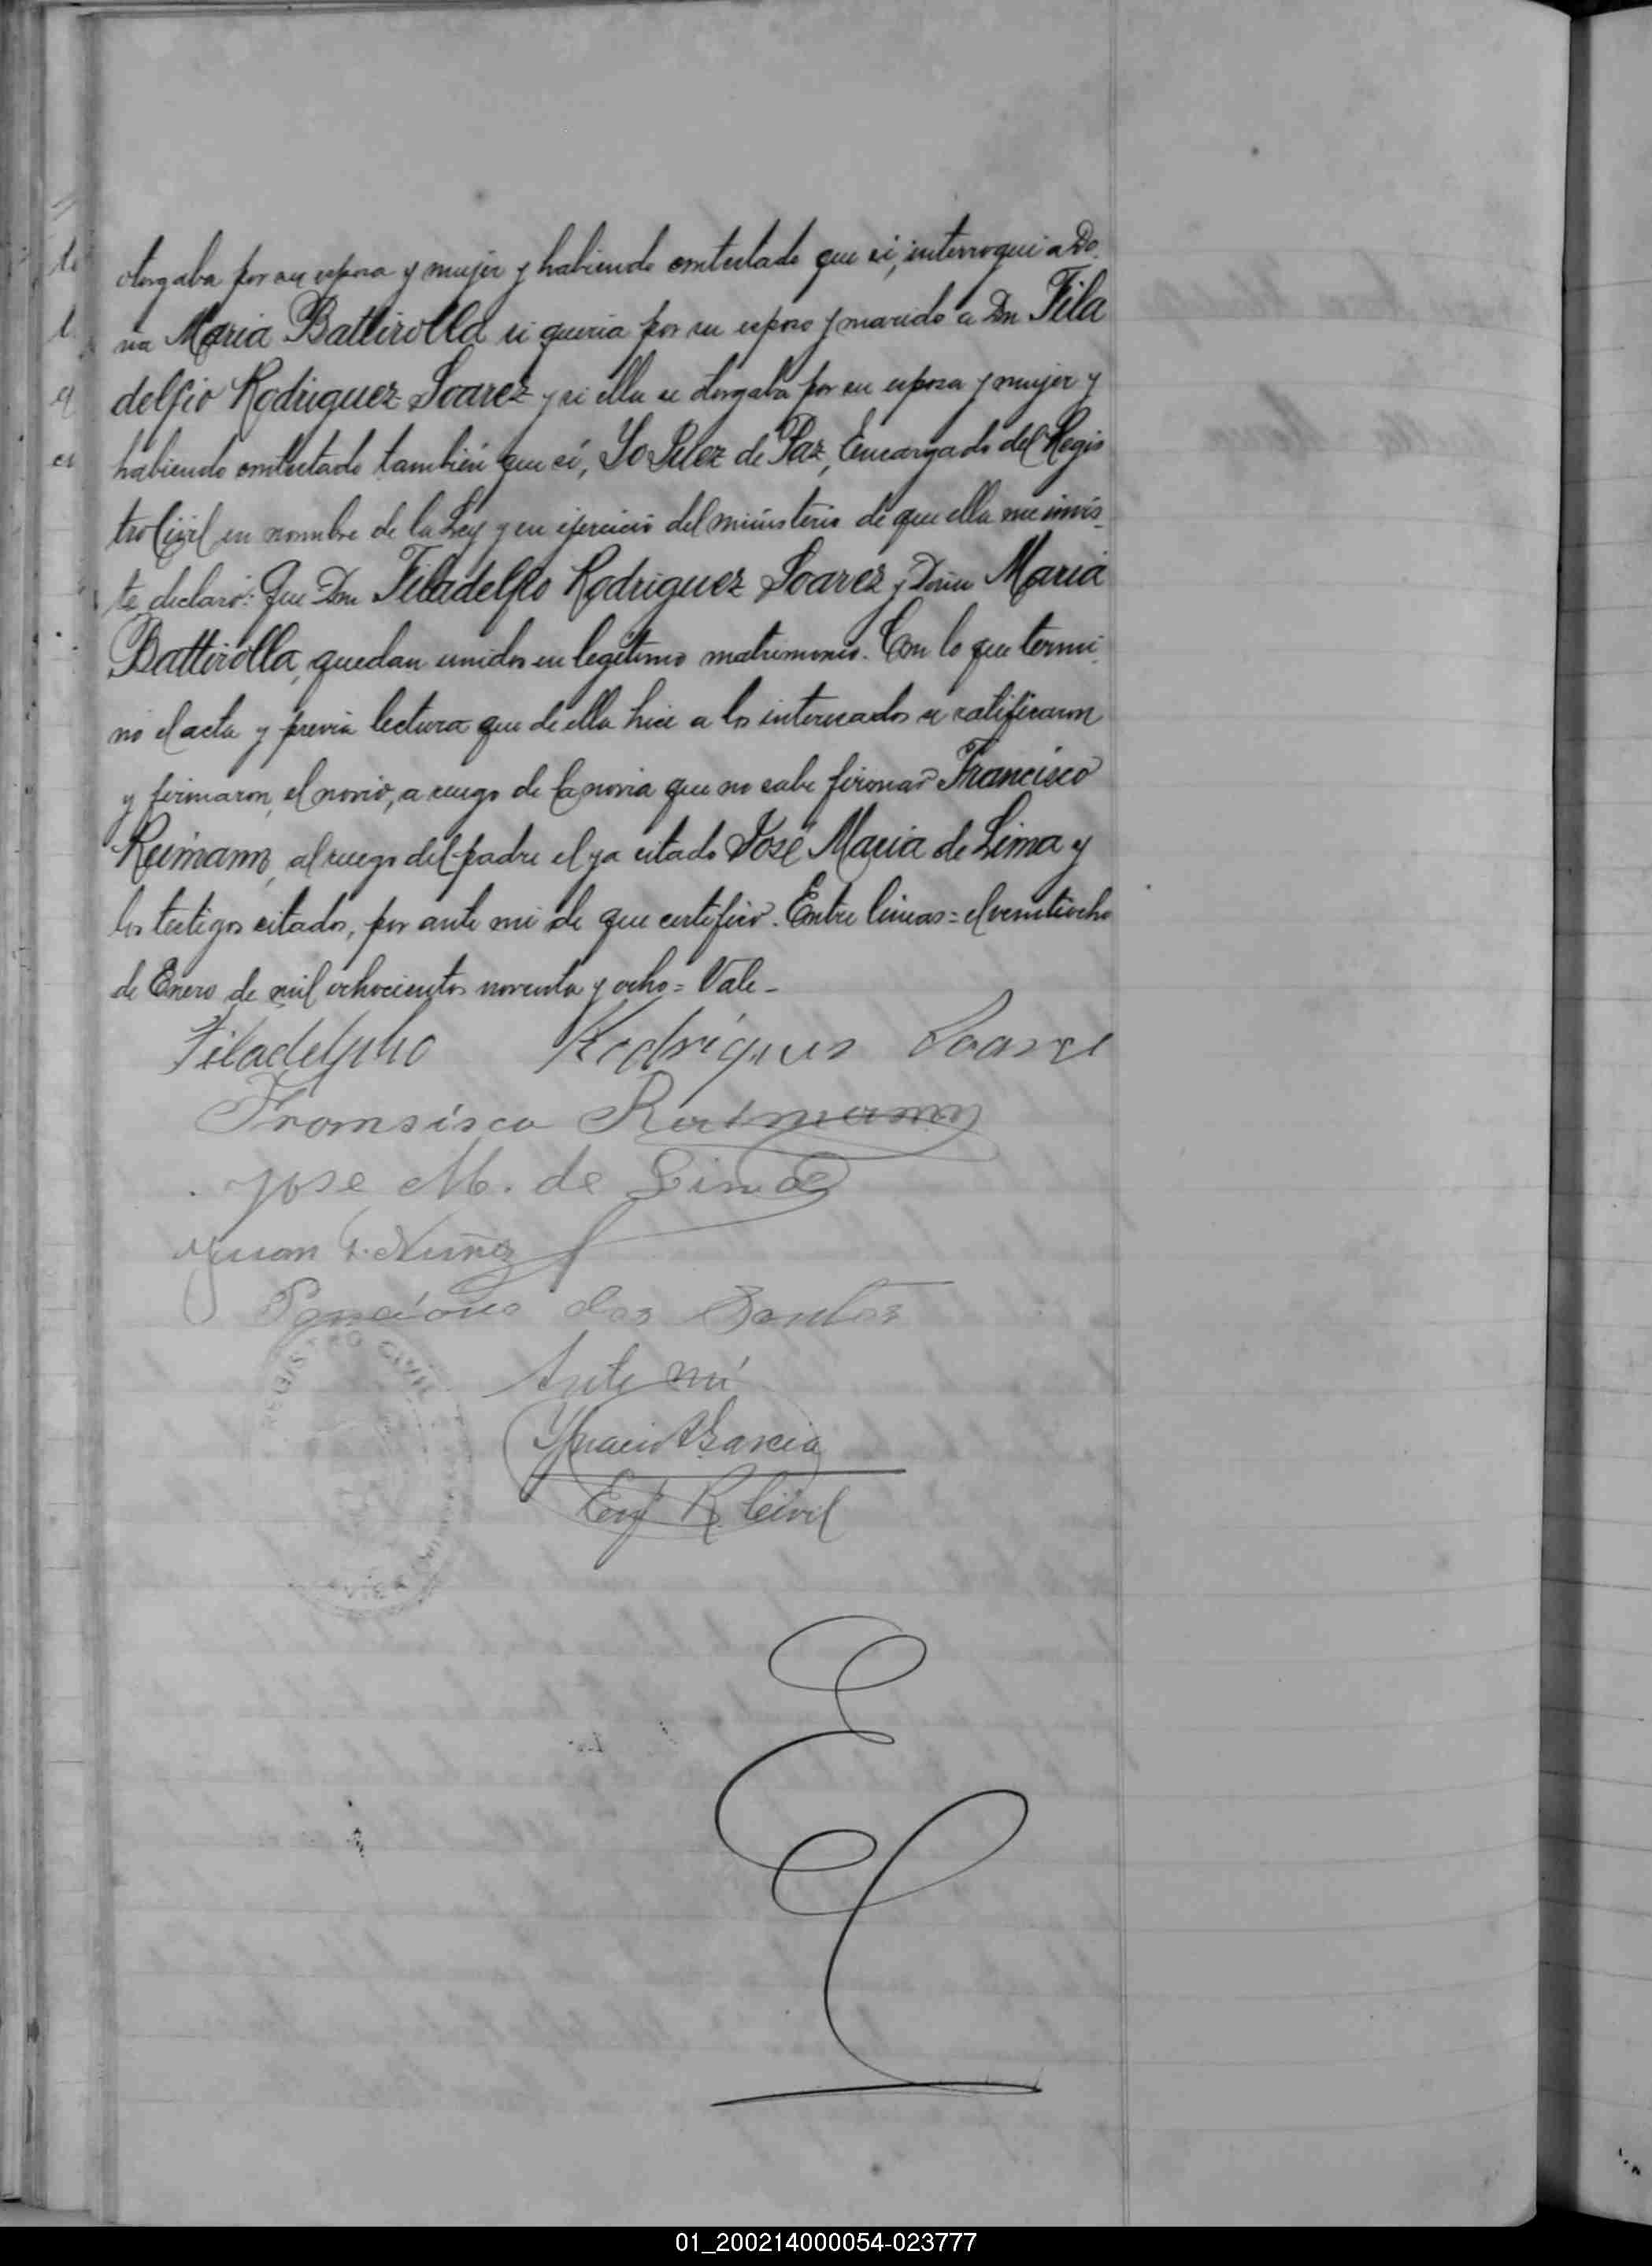 otorgaba por su esposa y mujer y habiendo contestado que si, interrogué a Do
ña Maria Battirolla si queria por su esposo y marido a Don Fila
delfio Rodriguez Soarez y si ella se otorgaba por su esposa y mujer y
habiendo contestado también que sí, Yo Juez de Paz, Encargado del Regis
tro Civil en nombre de la Ley y en ejercicio del ministerio de que ella me invis-
te declaro: Que Don Filadelfio Rodriguez Soarez y Doña Maria
Battirolla, quedan unidos en legitimo matrimonio. Con lo que termi-
nó el acta y previa lectura que de ella hice a los interesados se ratificaron
y firmaron, el novio, a ruego de la novia que no sabe firmar Francisco
Reimann, al ruego del padre el ya citado José Maria de Lima y
los testigos citados, por ante mi de que certifico. Entre lineas = el veintiocho
de Enero de mil ochocientos noventa y ocho = Vale -
Filadelpho Rodrigues Soares
Fromsisco Reimann
Jose M. de Lima
Juan Nuñez
dos Santos
Ante mí
Ygnacio Garcia
Enc R. Civil
REGISTRO CIVIL
01_200214000054-023777